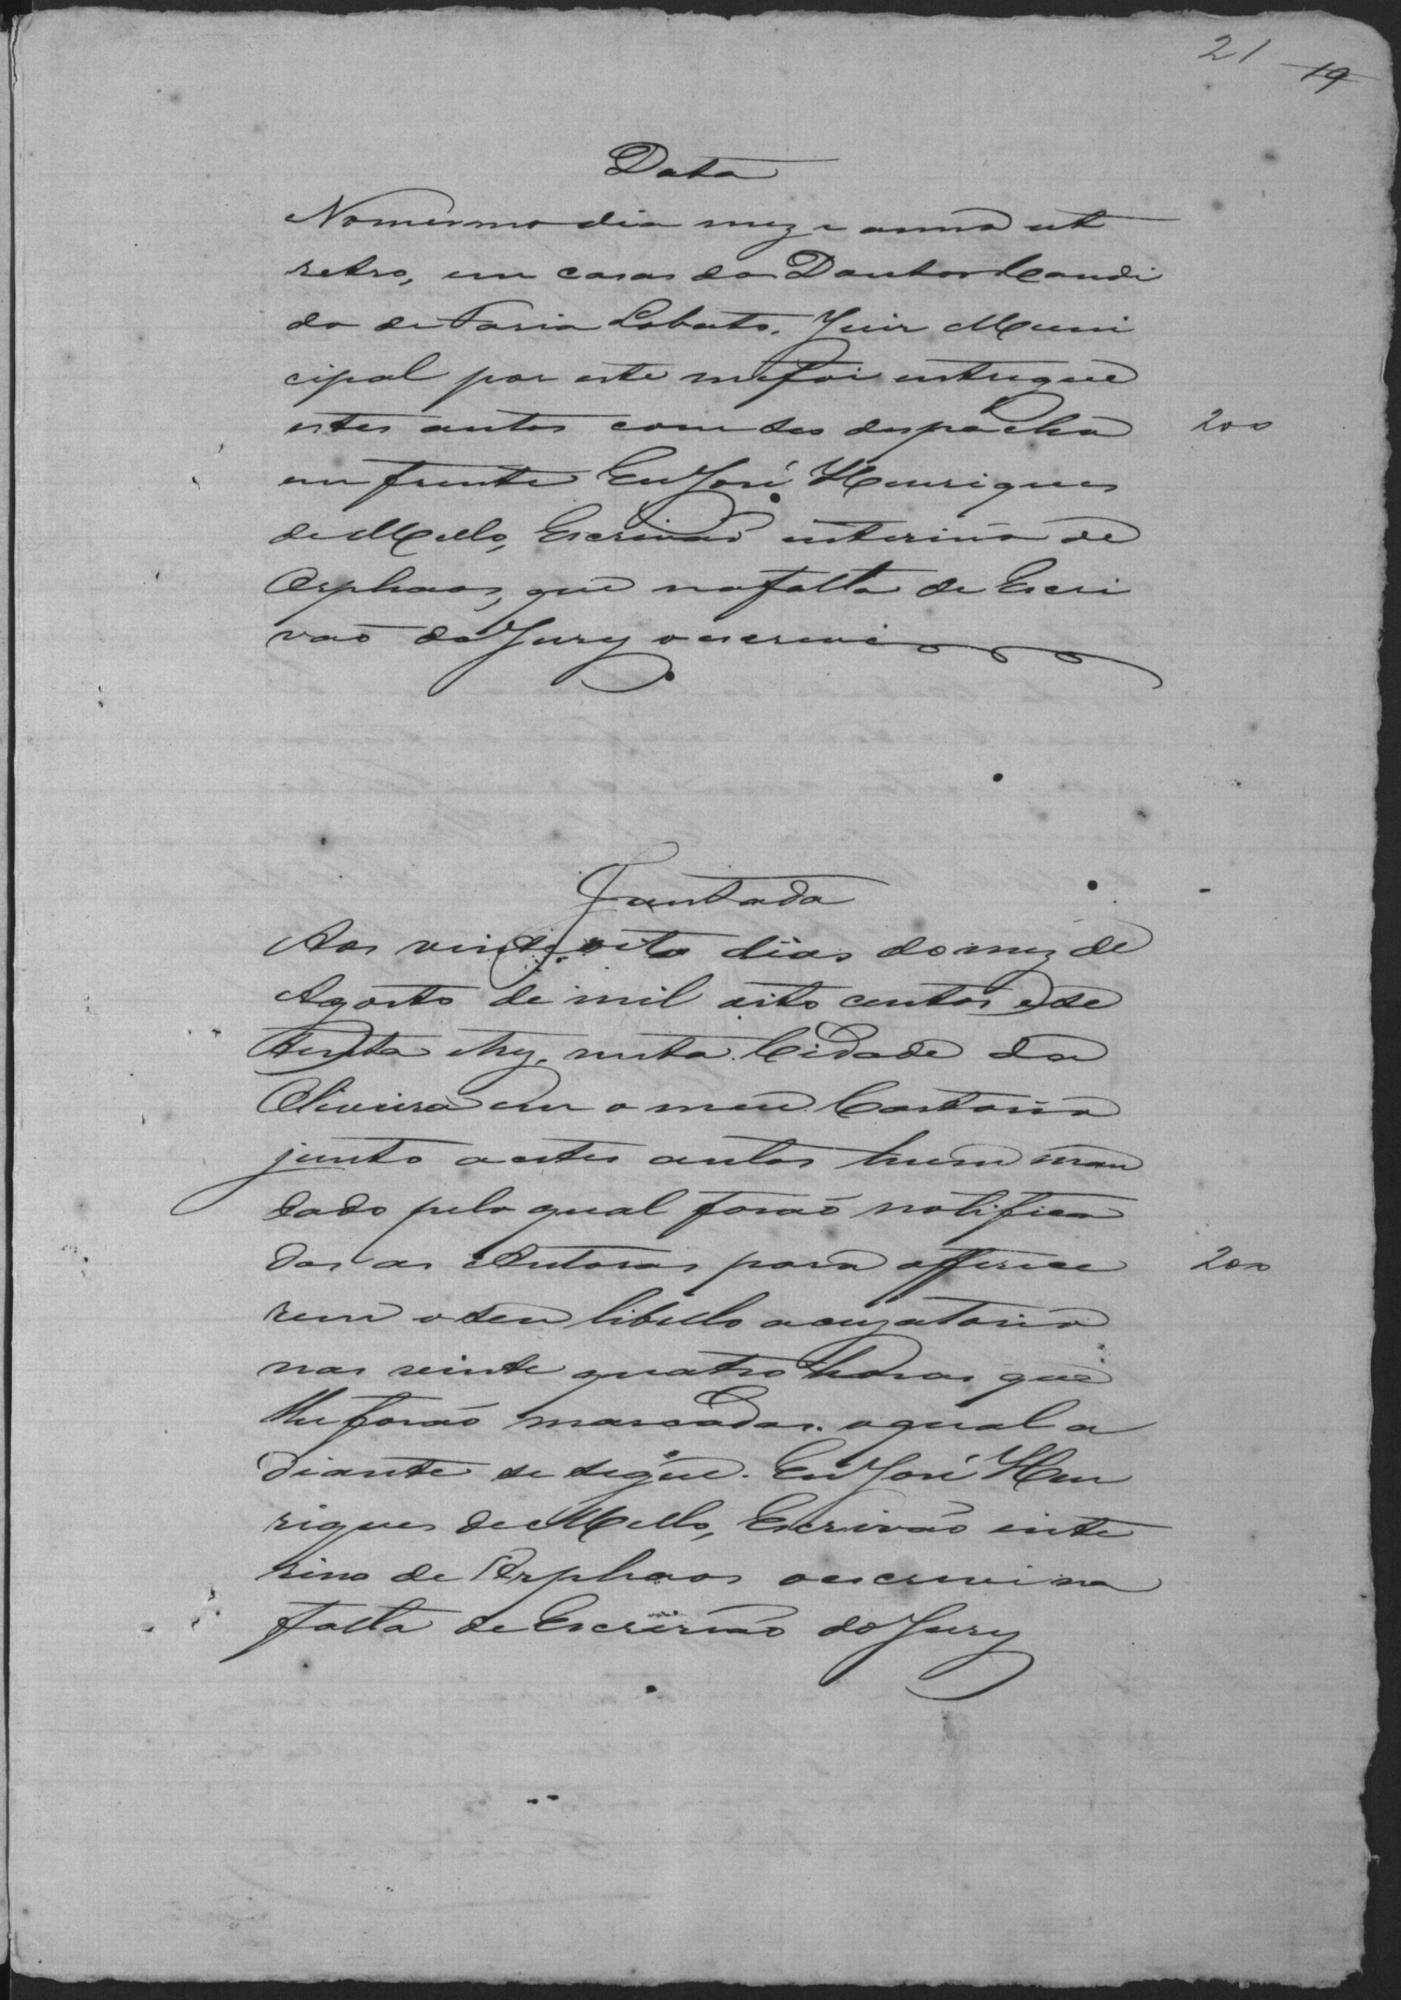 21 19
Data
No mesmo dia mez e anno ut
retro, em casas do Doutor Candi
do de Faria Lobato, Juiz Muni
cipal por este me foi entregue
estes autos com seo despacho
200
em frente Eu José Henriques
de Mello, Escrivaõ interino de
Orphaos, que na falta de Escri
vaõ do Jury o escrevi
Juntada
Aos vinte oito dias do mez de
Agosto de mil oito centos e se
tenta e trez, nesta Cidade da
Oliveira em o meu Cartorio
junto a estes autos hum man
dado pelo qual foraõ notifica
das as Autoras para offerece
200
rem o seu libello acuzatorio
nas vinte quatro horas que
lhe foraõ marcadas, o qual a
diante se segue. Eu José Hen
riques de Mello, Escrivaõ inte
rino de Orphaos o escrevi na
falta de Escrivaõ do Jury